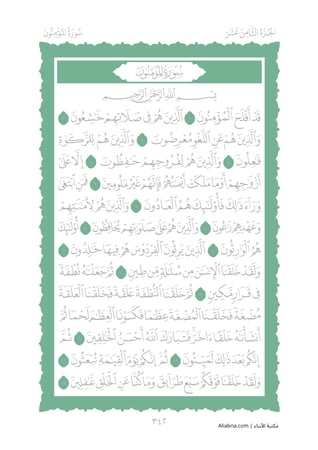 الجُزْءُ الثَّامِنَ عَشَرَ سُورَةُ المُؤْمِنُونَ
سُورَةُ المُؤْمِنُونَ
بِسْمِ ٱللَّهِ ٱلرَّحْمَٰنِ ٱلرَّحِيمِ
قَدْ أَفْلَحَ ٱلْمُؤْمِنُونَ ١ ٱلَّذِينَ هُمْ فِى صَلَاتِهِمْ خَٰشِعُونَ ٢
وَٱلَّذِينَ هُمْ عَنِ ٱللَّغْوِ مُعْرِضُونَ ٣ وَٱلَّذِينَ هُمْ لِلزَّكَوٰةِ
فَٰعِلُونَ ٤ وَٱلَّذِينَ هُمْ لِفُرُوجِهِمْ حَٰفِظُونَ ٥ إِلَّا عَلَىٰٓ
أَزْوَٰجِهِمْ أَوْ مَا مَلَكَتْ أَيْمَٰنُهُمْ فَإِنَّهُمْ غَيْرُ مَلُومِينَ ٦ فَمَنِ ٱبْتَغَىٰ
وَرَآءَ ذَٰلِكَ فَأُو۟لَٰٓئِكَ هُمُ ٱلْعَادُونَ ٧ وَٱلَّذِينَ هُمْ لِأَمَٰنَٰتِهِمْ
وَعَهْدِهِمْ رَٰعُونَ ٨ وَٱلَّذِينَ هُمْ عَلَىٰ صَلَوَٰتِهِمْ يُحَافِظُونَ ٩ أُو۟لَٰٓئِكَ
هُمُ ٱلْوَٰرِثُونَ ١٠ ٱلَّذِينَ يَرِثُونَ ٱلْفِرْدَوْسَ هُمْ فِيهَا خَٰلِدُونَ ١١
وَلَقَدْ خَلَقْنَا ٱلْإِنسَٰنَ مِن سُلَٰلَةٍ مِّن طِينٍ ١٢ ثُمَّ جَعَلْنَٰهُ نُطْفَةً
فِى قَرَارٍ مَّكِينٍ ١٣ ثُمَّ خَلَقْنَا ٱلنُّطْفَةَ عَلَقَةً فَخَلَقْنَا ٱلْعَلَقَةَ
مُضْغَةً فَخَلَقْنَا ٱلْمُضْغَةَ عِظَٰمًا فَكَسَوْنَا ٱلْعِظَٰمَ لَحْمًا ثُمَّ
أَنشَأْنَٰهُ خَلْقًا ءَاخَرَ فَتَبَارَكَ ٱللَّهُ أَحْسَنُ ٱلْخَٰلِقِينَ ١٤ ثُمَّ
إِنَّكُم بَعْدَ ذَٰلِكَ لَمَيِّتُونَ ١٥ ثُمَّ إِنَّكُمْ يَوْمَ ٱلْقِيَٰمَةِ تُبْعَثُونَ ١٦
وَلَقَدْ خَلَقْنَا فَوْقَكُمْ سَبْعَ طَرَآئِقَ وَمَا كُنَّا عَنِ ٱلْخَلْقِ غَٰفِلِينَ ١٧
٣٤٢
مكتبة الأبناء | Aliabna.com